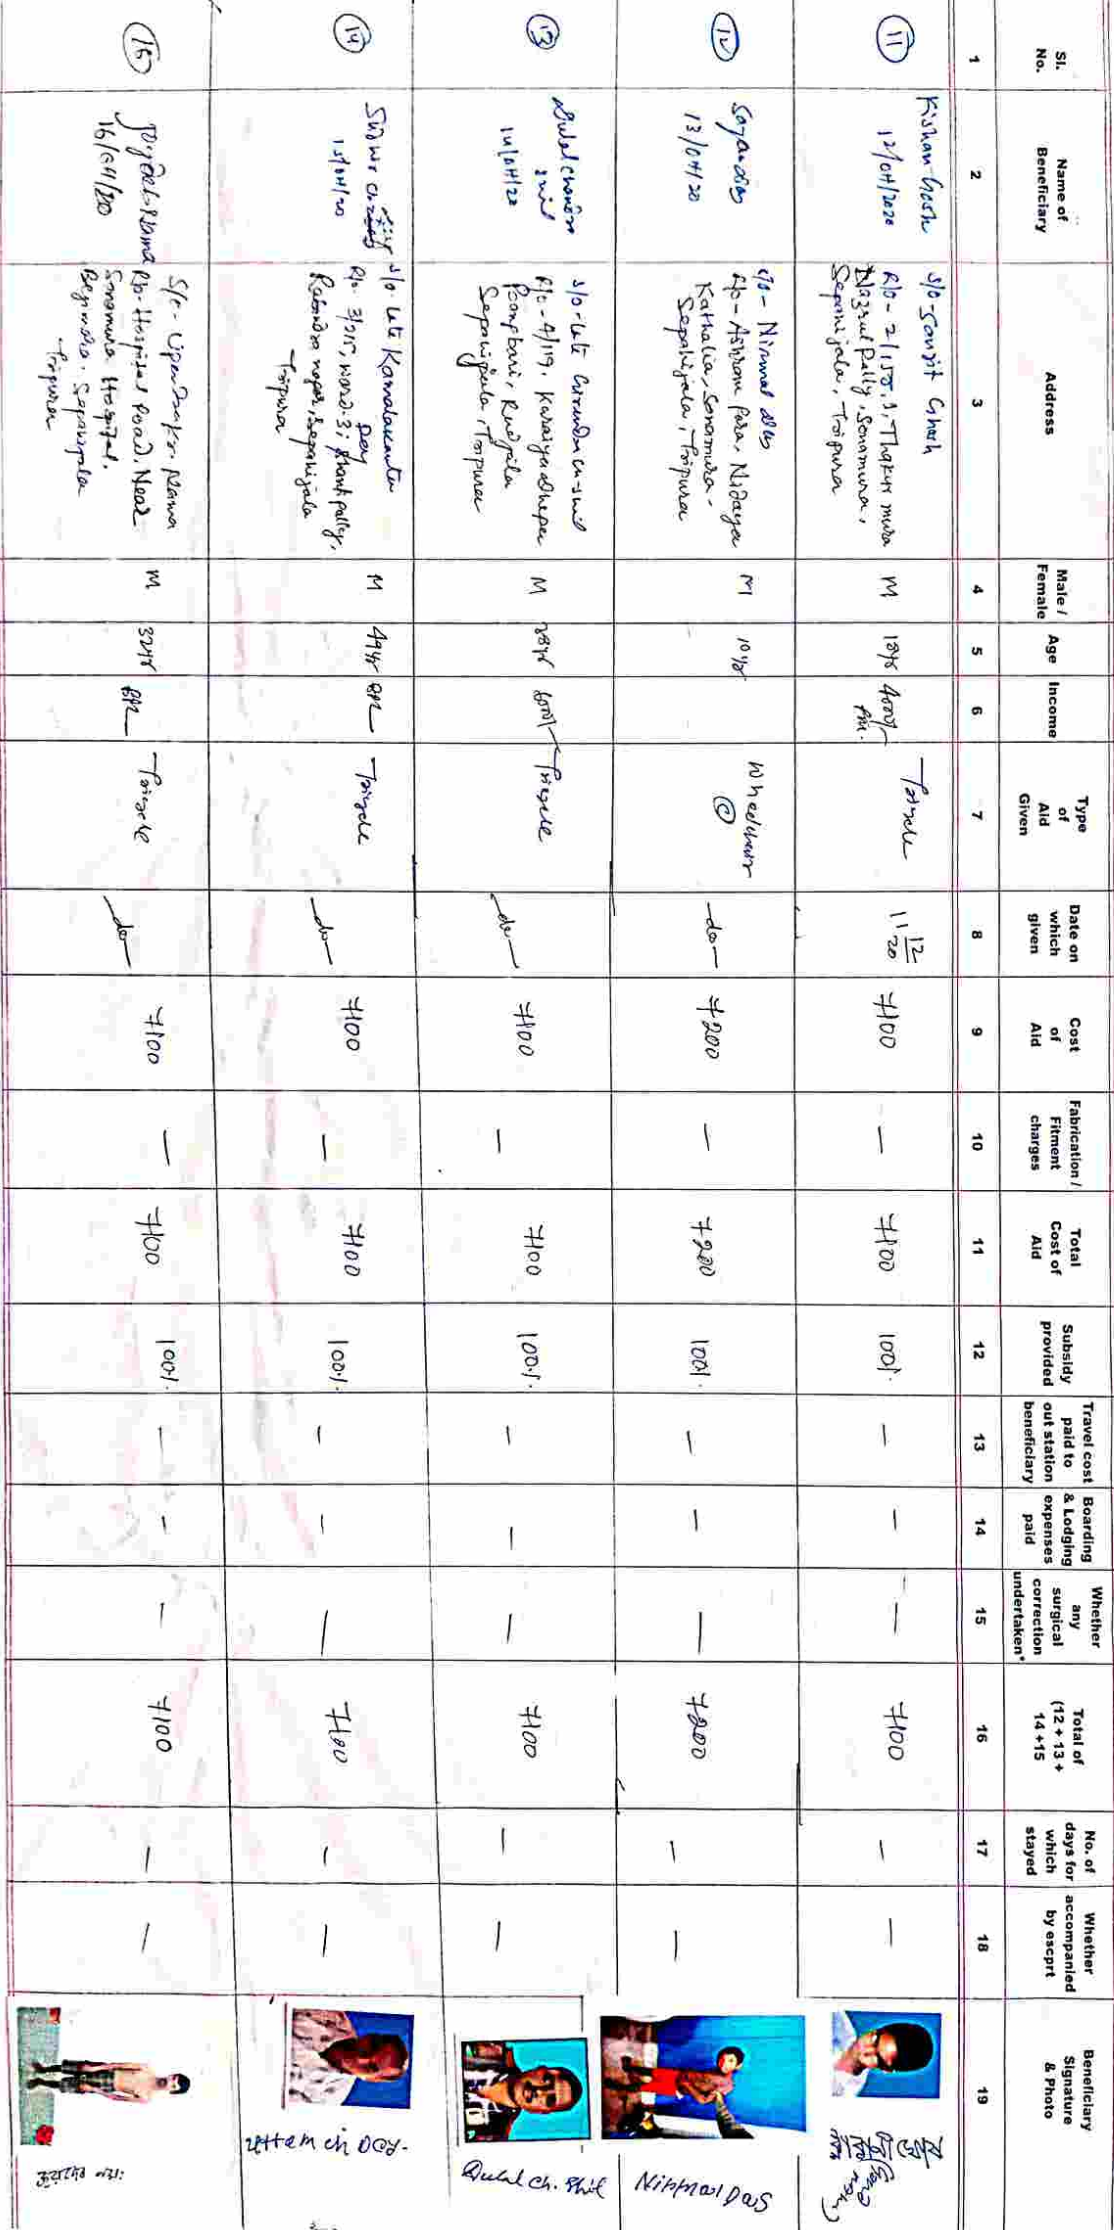 Sl. No.
Name of Beneficiary
Address
Male / Female
Age
Income
Type of Aid Given
Date on which given
Cost of Aid
Fabrication / Fitment charges
Total Cost of Aid
Subsidy provided
Travel cost paid to out station beneficiary
Boarding & Lodging expenses paid
Whether any surgical correction undertaken*
Total of (12 + 13 + 14 +15
No. of days for which stayed
Whether accompanied by escprt
Beneficiary Signature & Photo
1 2 3 4 5 6 7 8 9 10 11 12 13 14 15 16 17 18 19
11
Kishan Gosh
12/04/2020
S/o - Sanjit Ghosh
R/o - 2/155, 1, Thakur mura
Nazrul Pally, Sonamura,
Sepahijala, Tripura
M
18yr
4000/- P.M.
Tricycle
12/11/20
7100
—
7100
100%.
—
—
—
7100
—
—
12
Sayan das
13/04/20
S/o - Nirmal das
R/o - Ashram Para, Nidaya
Kathalia, Sonamura -
Sepahijala, Tripura
M
10yr
Wheelchair
©
—do—
7200
—
7200
100%.
—
—
—
7200
—
—
Nirmal Das
13
Dulal chandra shil
14/04/20
S/o - Late
R/o - 4/119,
Sepahijala, Tripura
M
28yr
6000/-
Tricycle
—do—
7100
—
7100
100%.
—
—
—
7100
—
—
Dulal ch. Shil
14
15/04/20
S/o - Late Kamalakanta Dey
R/o - 3/215, Ward. 3,
Rabindra nagar, Sepahijala
Tripura
M
49yr
BPL
Tricycle
—do—
7100
—
7100
100%.
—
—
—
7100
—
—
Uttam ch Dey.
15
16/04/20
R/o - Hospital Road, Near
Sonamura Hospital.
Sepahijala
Tripura
M
32yr
BPL
Tricycle
—do—
7100
—
7100
100%.
—
—
—
7100
—
—